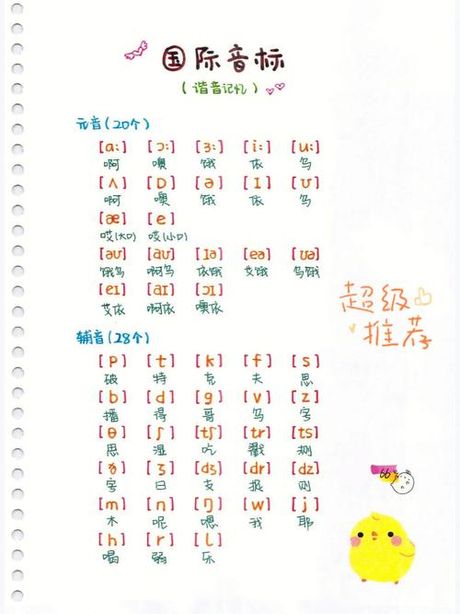 国际音标
(谐音记忆)
元音(20个)
[ɑ:] [ɔ:] [ɜ:] [i:] [u:]
啊 噢 饿 依 乌
[ʌ] [ɒ] [ə] [ɪ] [ʊ]
啊 噢 饿 依 乌
[æ] [e]
哎(大口) 哎(小口)
[əʊ] [aʊ] [ɪə] [eə] [ʊə]
饿乌 啊乌 依饿 艾饿 乌饿
[eɪ] [aɪ] [ɔɪ]
艾依 啊依 噢依
超级
推荐
辅音(28个)
[p] [t] [k] [f] [s]
破 特 克 夫 思
[b] [d] [g] [v] [z]
播 得 哥 乌 字
[θ] [ʃ] [tʃ] [tr] [ts]
思 湿 吃 戳 测
[ð] [ʒ] [dʒ] [dr] [dz]
字 日 支 捉 则
[m] [n] [ŋ] [w] [j]
木 呢 嗯 我 耶
[h] [r] [l]
喝 弱 乐